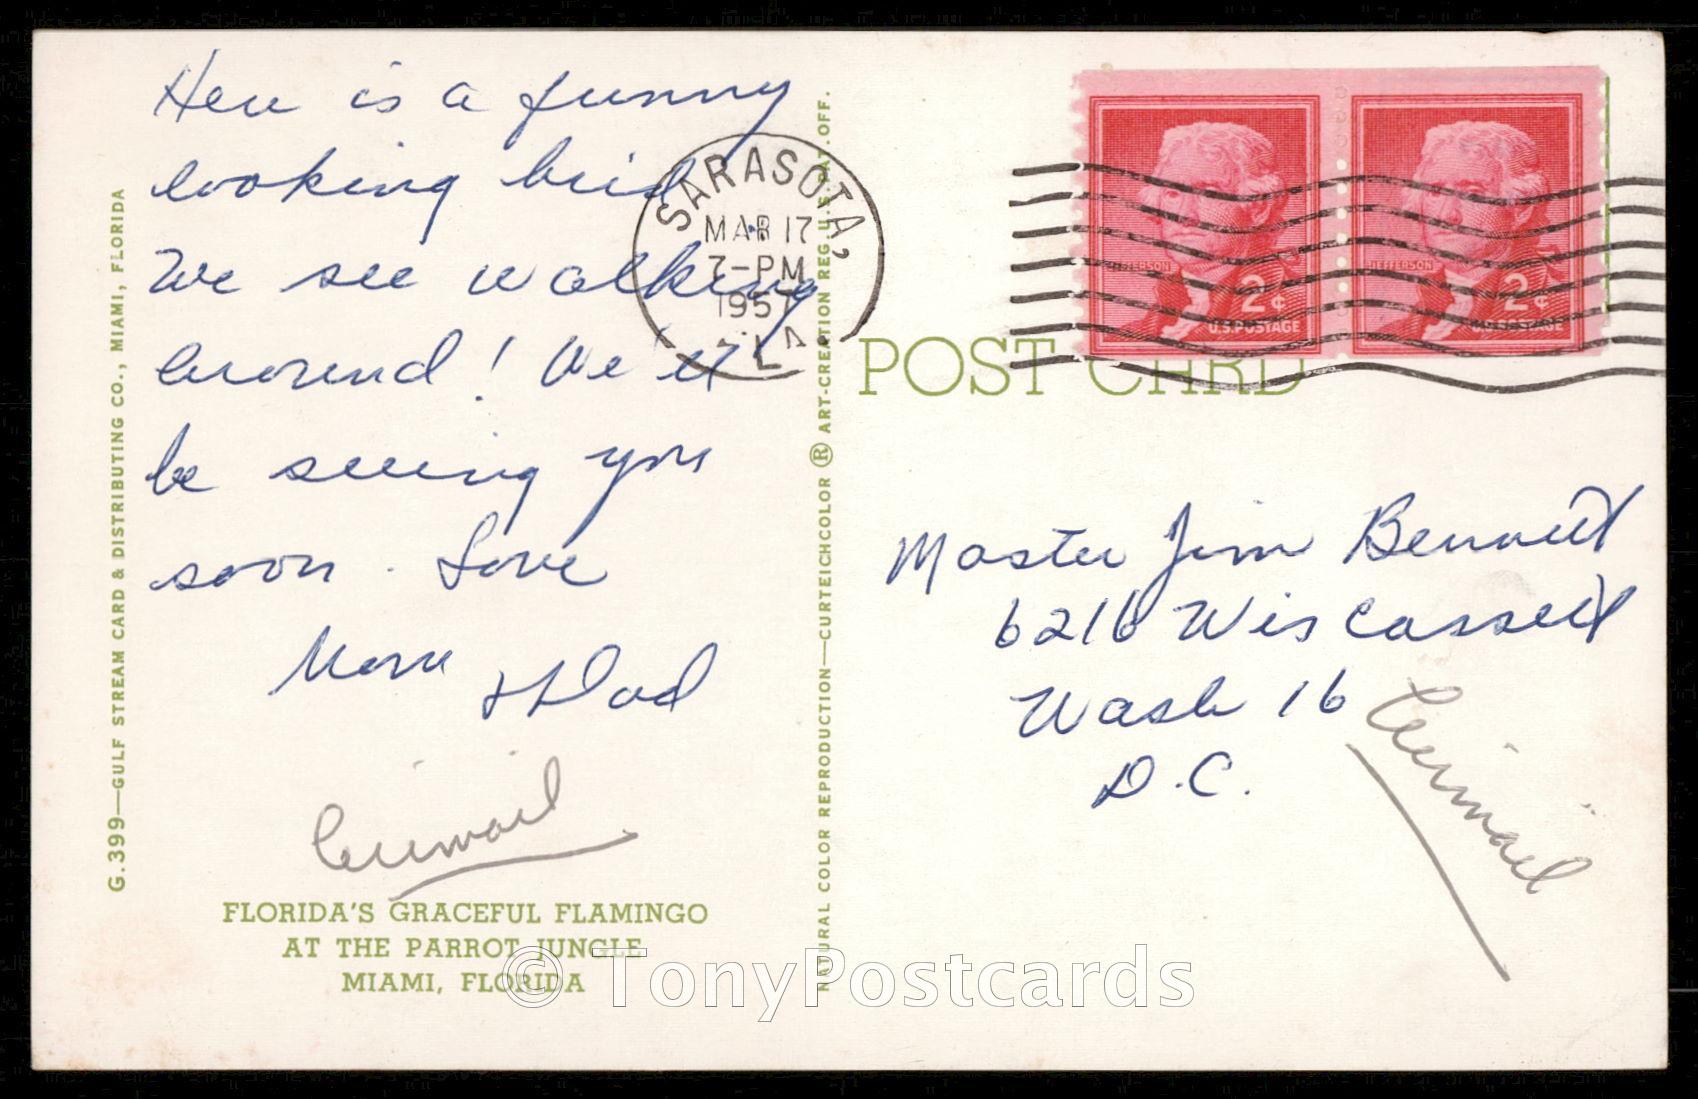 Here is a funny
looking bird
We see walking
around! We'll
be seeing you
soon. Love
Mom
& Dad
Airmail
FLORIDA'S GRACEFUL FLAMINGO
AT THE PARROT JUNGLE
MIAMI, FLORIDA
G.399—GULF STREAM CARD & DISTRIBUTING CO., MIAMI, FLORIDA
NATURAL COLOR REPRODUCTION—CURTEICHCOLOR ® ART-CREATION REG. U.S. PAT. OFF.
SARASOTA,
MAR 17
7-PM
1957
FLA.
JEFFERSON
2¢
U.S. POSTAGE
JEFFERSON
2¢
U.S. POSTAGE
POST CARD
Master Jim Bennett
6216 Wiscassett
Wash 16
D.C.
Airmail
© TonyPostcards